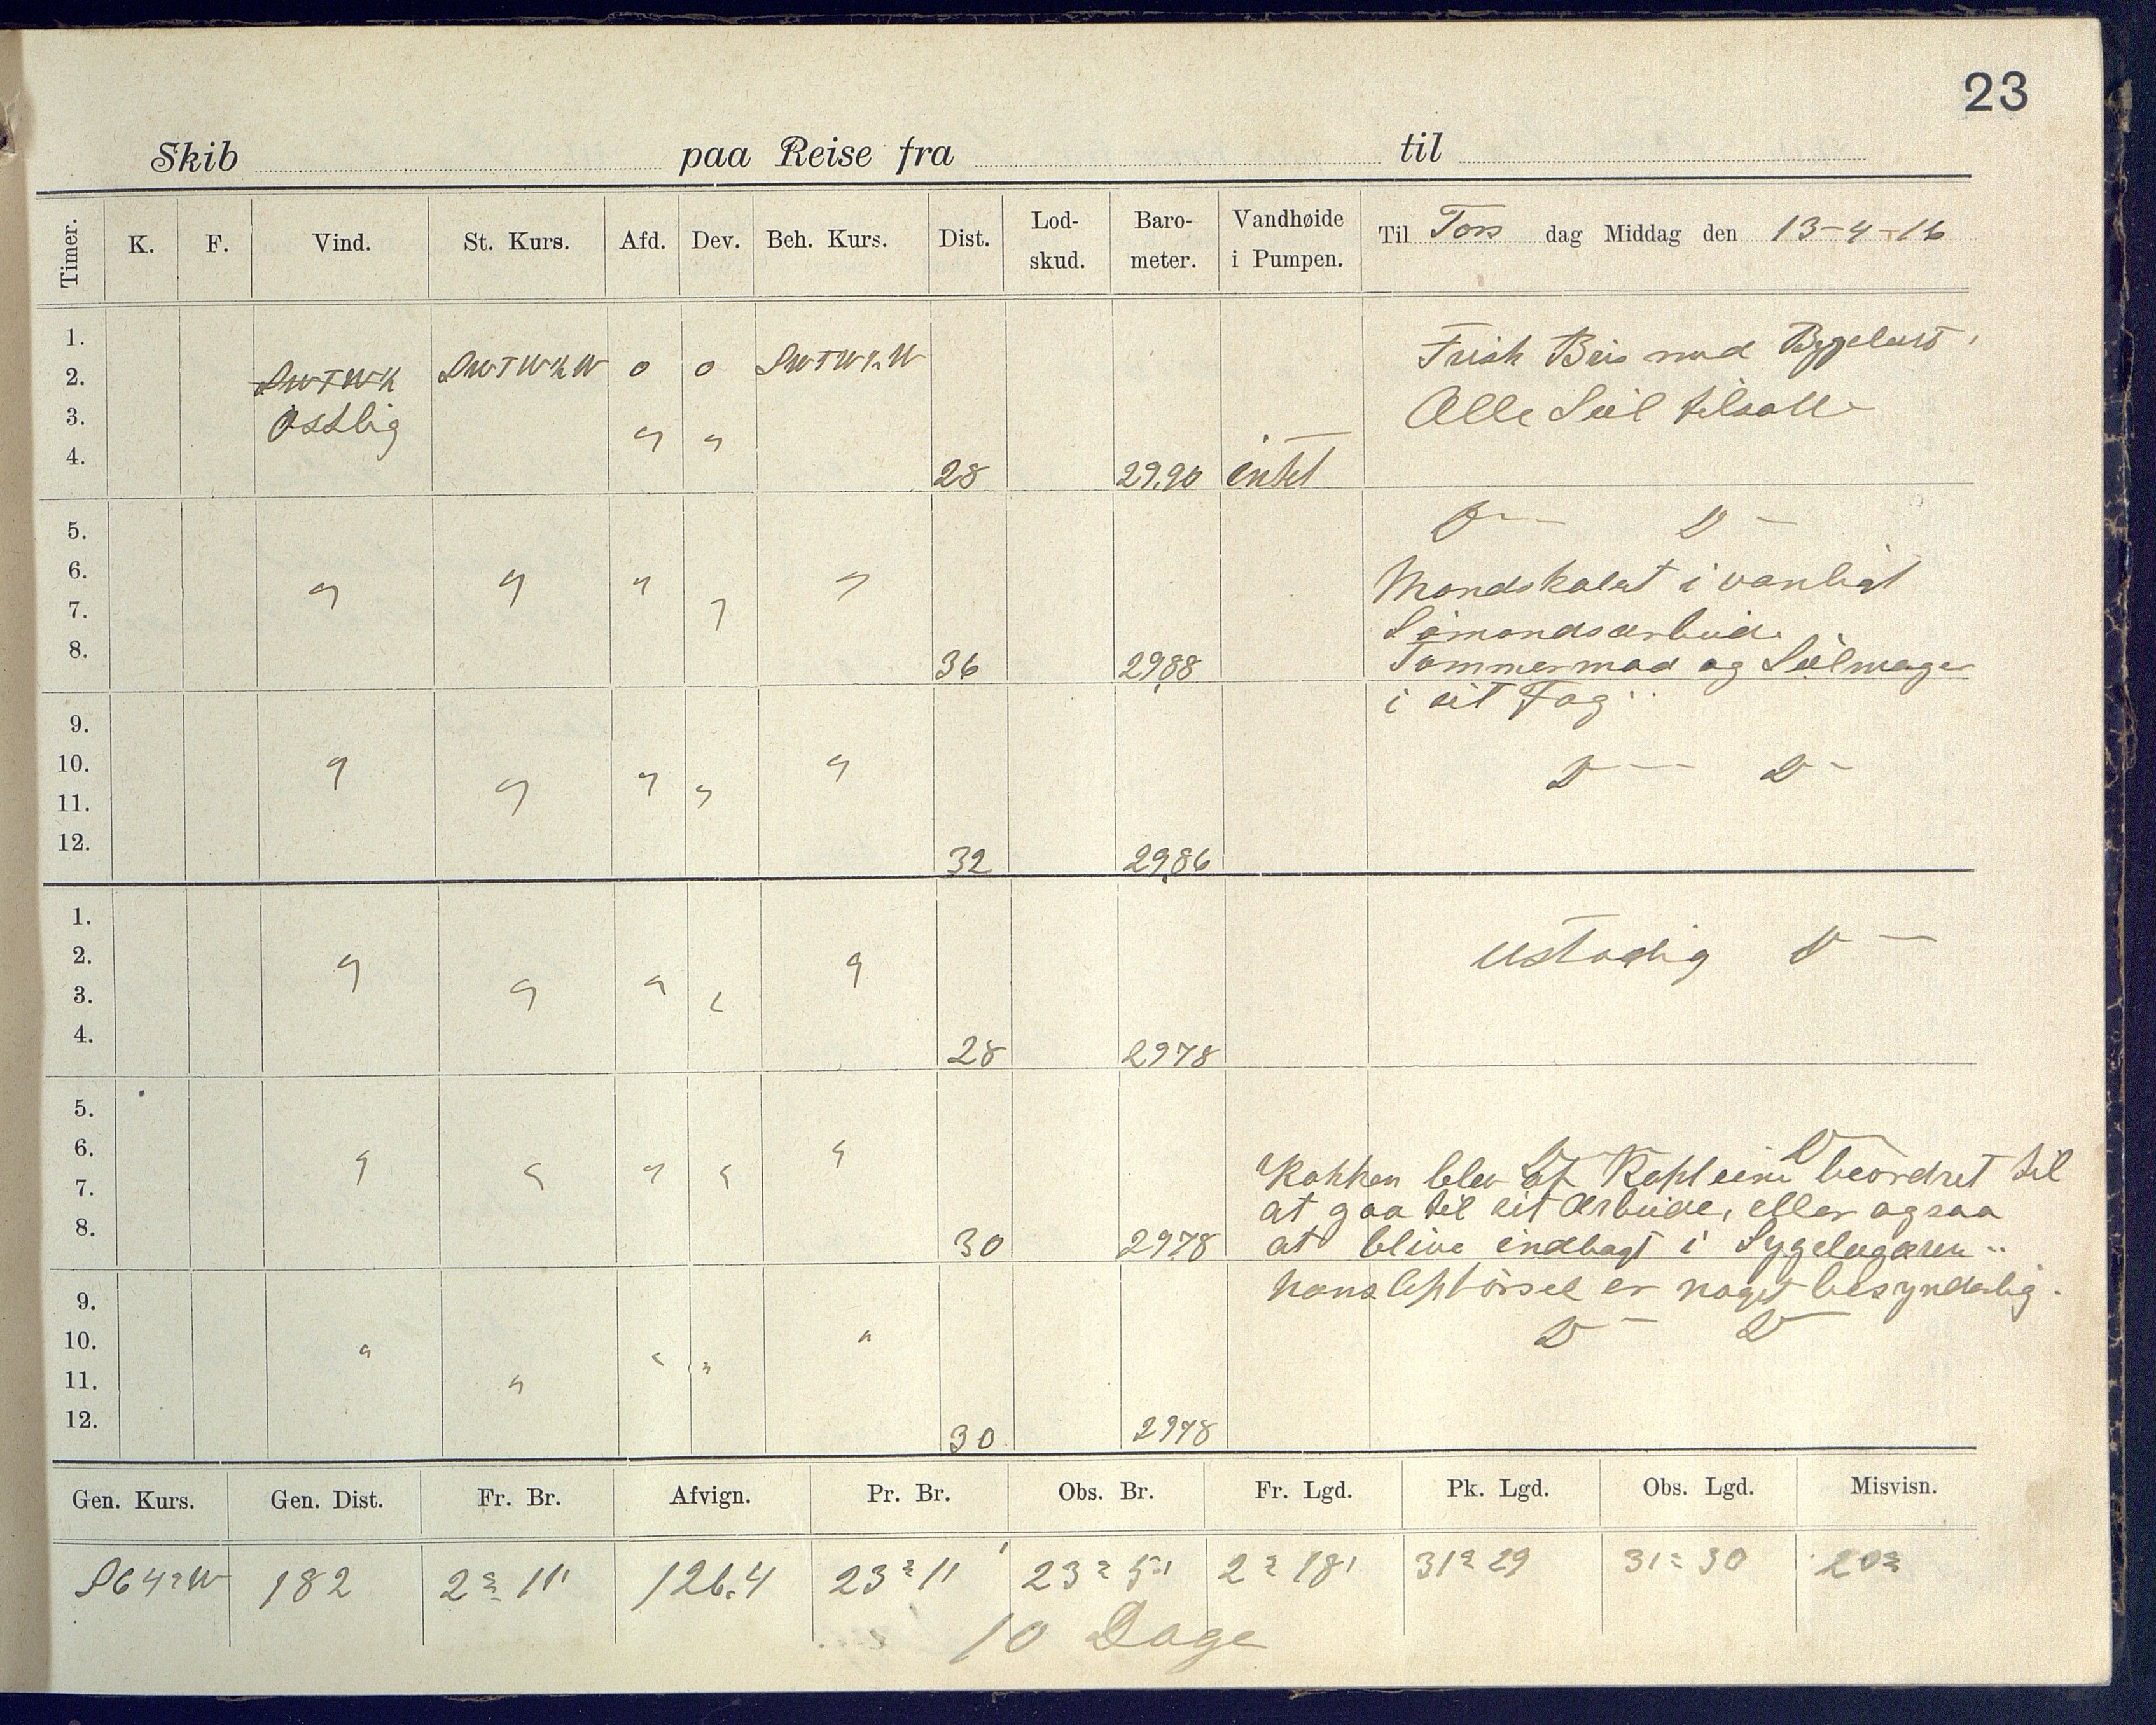 23
Skib paa Reise fra til
Timer. K. F. Vind. St. Kurs. Afd. Dev. Beh. Kurs. Dist. Lod-skud. Baro-meter. Vandhøide i Pumpen. Til Tors dag Middag den 13-4-16
1. Frisk Bris med Bygeluft,
2. SWTWK SWTW½W 0 0 SWTW½W
3. Ostlig " " Alle Seil tilsatte
4. 28 29.90 intet
5. D— D—
6. " " " " Mandskabet i vanligt
7. " Sömandsarbeide
8. 36 29,88 Tømmermad og Seilmager
i sit Fag.
9.
10. " " " D— D—
11. " "
12. 32 29,86
1.
2. " " ustadig D—
3. " " "
4. 28 2978
5.
6. " " D—
7. " " " Kokken blev af Kapteine beordret til
at gaa til sit Arbeide, eller ogsaa
8. 30 29,78 at blive indlagt i Sygelugaren..
hans Opförsel er noget besynderlig.
9.
10. " " D— D—
11. " " "
12. 30 2978
Gen. Kurs. Gen. Dist. Fr. Br. Afvign. Pr. Br. Obs. Br. Fr. Lgd. Pk. Lgd. Obs. Lgd. Misvisn.
S64°W 182 2° 11' 126.4 23° 11' 23° 5' 2° 18' 31° 29 31° 30 20°
10 Dage